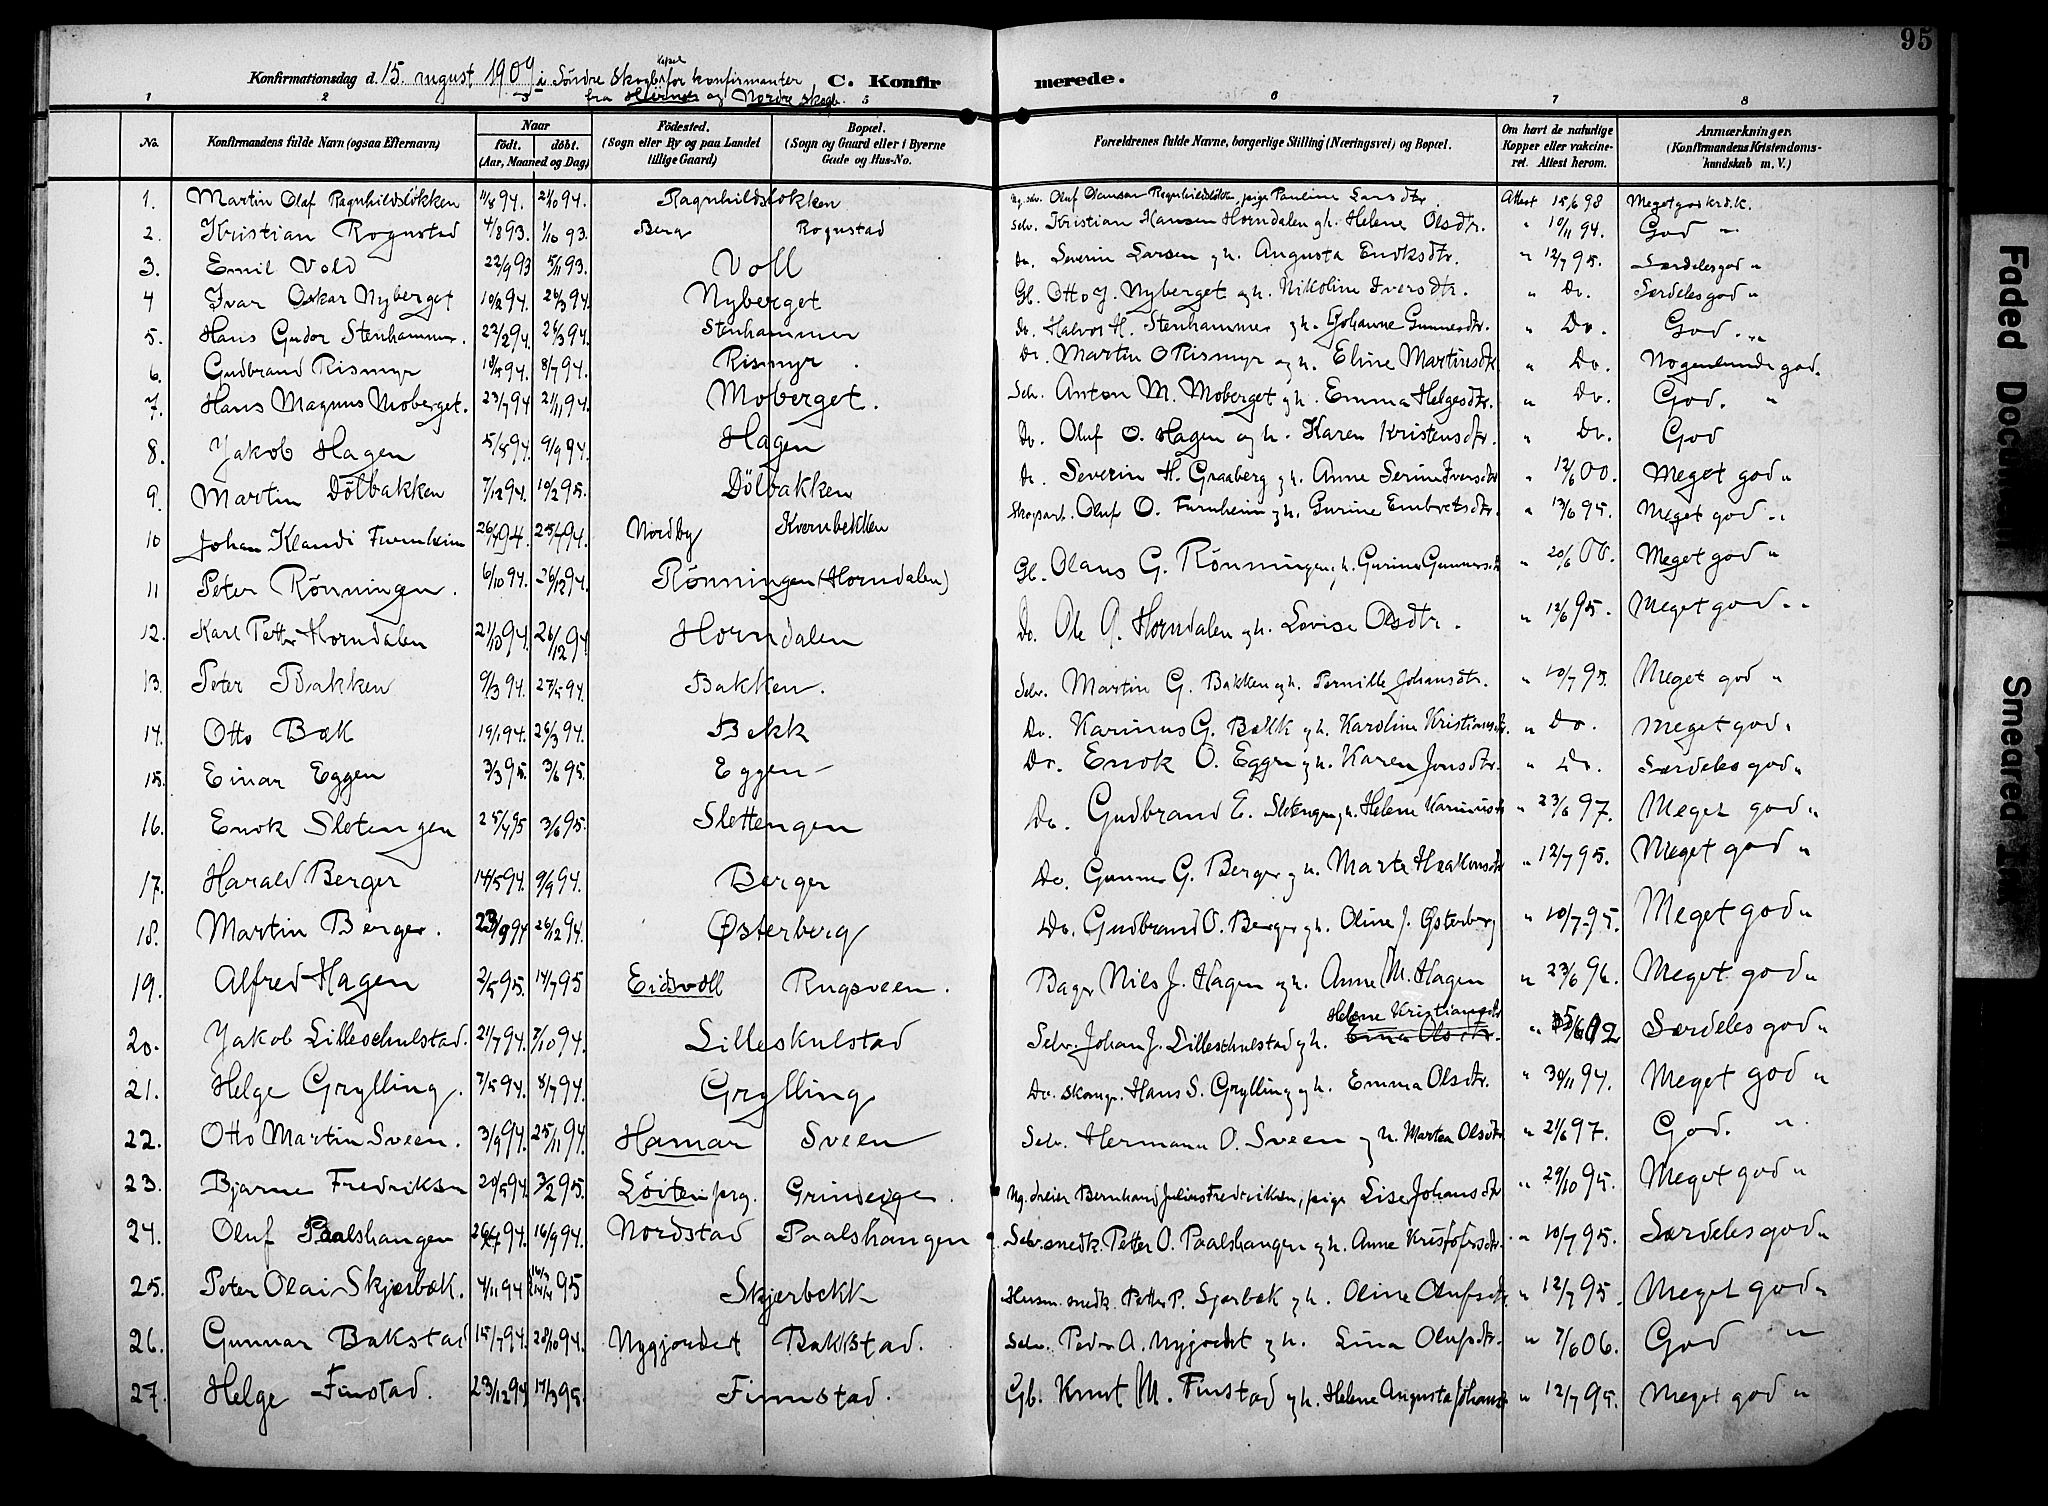 95
Konfirmationsdag d. 15. august 1909 i Söndre Skogb. Kapel for konfirmanter C. Konfirmerede.
fra og Nordre Skogb.
1 2 3 5 6 7 8
No. Konfirmandens fulde Navn (ogsaa Efternavn) Naar født. døbt. (Aar, Maaned og Dag) Fødested. (Sogn eller By og paa Landet tillige Gaard) Bopæl. (Sogn og Gaard eller i Byerne Gade og Hus-No. Forældrenes fulde Navne, borgerlige Stilling (Næringsvei) og Bopæl. Om havt de naturlige Kopper eller vakcineret. Attest herom. Anmærkninger. (Konfirmandens Kristendomskundskab m. V.)
1. Martin Olaf Ragnhildsløkken 11/8 94. 21/10 94. Ragnhildsløkken Ug. selv. Oluf Ragnhildsløkken, pige Pauline Larsdtr. Attest 15/6 98 Meget god krdk.
2. Kristian Rognstad 4/8 93. 1/10 93. Berg Rognstad Selv. Kristian Hansen Horndalen og h. Helene Olsdtr. " 10/11 94. God "
3. Emil Vold 22/9 93 5/11 93. Voll Do. Severin Larsen og h. Augusta Enoksdtr. " 12/7 95. Særdeles god "
4 Ivar Oskar Nyberget 10/2 94. 26/3 94. Nyberget Gl. Otto J. Nyberget og h. Nikoline Iversdtr. " Do. Særdeles god "
5. Hans Gudor Stenhammer. 22/2 94. 26/3 94. Stenhammer Do. Halvor H. Stenhammer og h. Johanne Gunnersdtr. " Do. God. "
6. Gudbrand Rismyr 94. 8/7 94. Rismyr. Do. Martin O Rismyr og h. Eline Martinsdtr. " Do. Nogenlunde god.
7. Hans Magnus Moberget. 23/7 94 21/11 94. Moberget. Selv. Anton M. Moberget og h. Emma Helgesdtr. " Do. God. "
8. Jakob Hagen 5/8 94. 9/9 94. Hagen Do. Oluf O. Hagen og h. Karen Kristensdtr. " Do. God
9. Martin Dölbakken 7/12 94. 10/2 95. Dölbakken Do. Severin H. Graaberg og h. Anne Serine Iversdtr " 12/6 00. Meget god "
10 Johan Klandi Furuheim 94. 94. Nordby Kvernbekken Skogsarb. Oluf O. Furuheim og h. Gurine Embretsdtr. " 13/6 95. Meget god "
11 Peter Rønningen. 6/10 94. 26/12 94. Rønningen (Horndalen) Gl. Olaus G. Rønningen og h. Gurine Gunnersdtr " 20/6 00. Meget god "
12. Karl Petter Horndalen 21/10 94. 26/12 94. Horndalen Do. Ole G. Horndalen og h. Lovise Olsdtr. " 12/6 95. Meget god "
13. Peter Bakken 9/3 94. 27/5 94. Bakken. Selv. Martin G. Bakken og h. Pernille Johansdtr. " 10/7 95. Meget god "
14. Otto Bæk 19/1 94. 26/3 94. Bekk Do. Karinus G. Bækk og h. Karoline Kristiansdtr. " Do. Meget god.
15. Einar Eggen 3/3 95. 3/6 95. Eggen Do. Enok O. Eggen og h. Karen Jonsdtr. " Do. Særdeles god "
16. Enok Slettengen 25/4 95 3/6 95. Slettengen Do. Gudbrand E. Slettengen og h. Helene Karinusdtr " 23/6 97. Meget god "
17. Harald Berger 14/5 94. 9/9 94. Berger Do. Gunner G. Berger og h. Marte Haakonsdtr " 12/7 95. Meget god "
18. Martin Berger. 23/9 94 26/12 94. Østerberg Do. Gudbrand O. Berger og h. Oline J. Østerberg " 10/7 95. Meget god "
19. Alfred Hagen 2/5 95. 14/7 95 Eidsvoll Rugsveen. Bager Nils J. Hagen og h. Anne M. Hagen " 23/6 96. Meget god "
20. Jakob Lilleschulstad. 21/7 94. 7/10 94. Lilleskulstad Selv. Johan J. Lilleschulstad og h. Helene Kristiansdtr Ema Olsdtr. " 02 Særdeles god "
21. Helge Grylling. 7/5 94. 8/7 94. Grylling Do. skomgr. Hans S. Grylling og h. Emma Olsdtr. " 30/11 94. Meget god "
22. Otto Martin Sveen. 3/9 94. 25/11 94. Hamar Sveen Selv. Hermann O. Sveen og h. Martea Olsdtr " 21/6 97. God. "
23. Bjarne Fredriksen 20/5 94. 3/2 95. Löiten prg. Grinseige. Ug. dreier Bernhard Julius Fredriksen, pige Lise Johansdtr " 29/10 95. Meget god "
24. Oluf Paalshaugen 26/7 94. 16/9 94. Nordstad Paalshaugen Selv. snedk. Petter O. Paalshaugen og h. Anne Kristofersdtr. " 10/7 95. Særdeles god "
25. Peter Olai Skjærbæk. 4/11 94 95 Skjærbekk Husm. snedk. Petter P. Sjærbæk og h. Oline Olufsdtr. " 12/7 95. Meget god "
26. Gunnar Bakstad 15/7 94. 28/10 94. Nygjordet Bakkstad. Selv. Peder A. Nygjordet og h. Lina Olufsdtr. " 7/6 06. God "
27. Helge Finstad. 23/12 94 17/3 95. Finnstad. Gb. Knut M. Finstad og h. Helene Augusta Johansdtr " 12/7 95. Meget god "
Faded Document
Smeared Ink